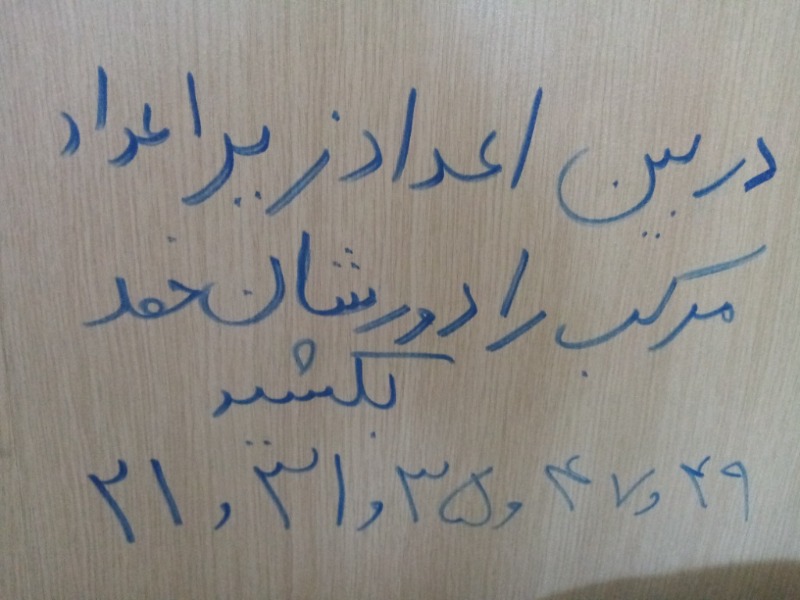 در بین اعداد زیر اعداد
مرکب را دورشان خط
بکشید
۲۱ , ۳۱ , ۳۵ , ۴۷ , ۴۹